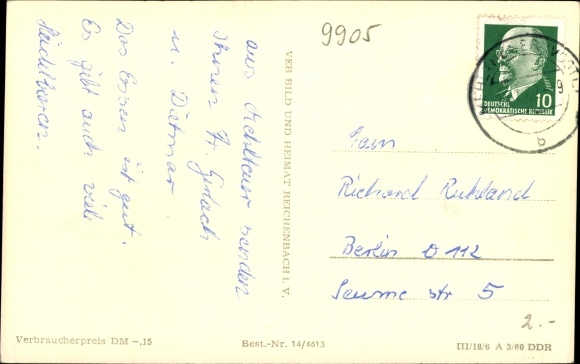 9905
DEUTSCHE
DEMOKRATISCHE REPUBLIK
10
b
aus Mehltauer senden
Ihnen H. Gerlach
u. Dietmar.
Das Essen ist gut.
Es gibt auch viele
VEB BILD UND HEIMAT REICHENBACH i. V.
Fam
Richard Ruhland
Berlin O 112
Seume str 5
2.-
Verbraucherpreis DM -,15
Best.-Nr. 14/4613
III/18/6 A 3/60 DDR